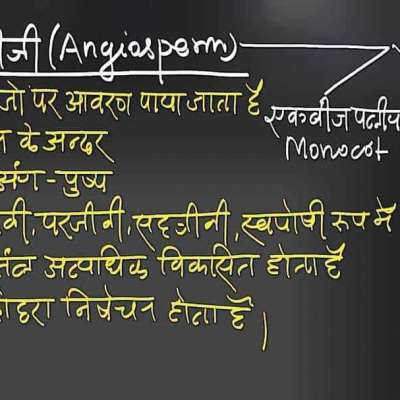 जी (Angiosperm)
जो पर आवरण पाया जाता है
एकबीजपत्रीय
के अन्दर
Monocot
अंग - पुष्प
वी, परजीवी, सहजीवी, स्वपोषी रूप में
तंत्र अत्यधिक विकसित होता है
दोहरा निषेचन होता है।